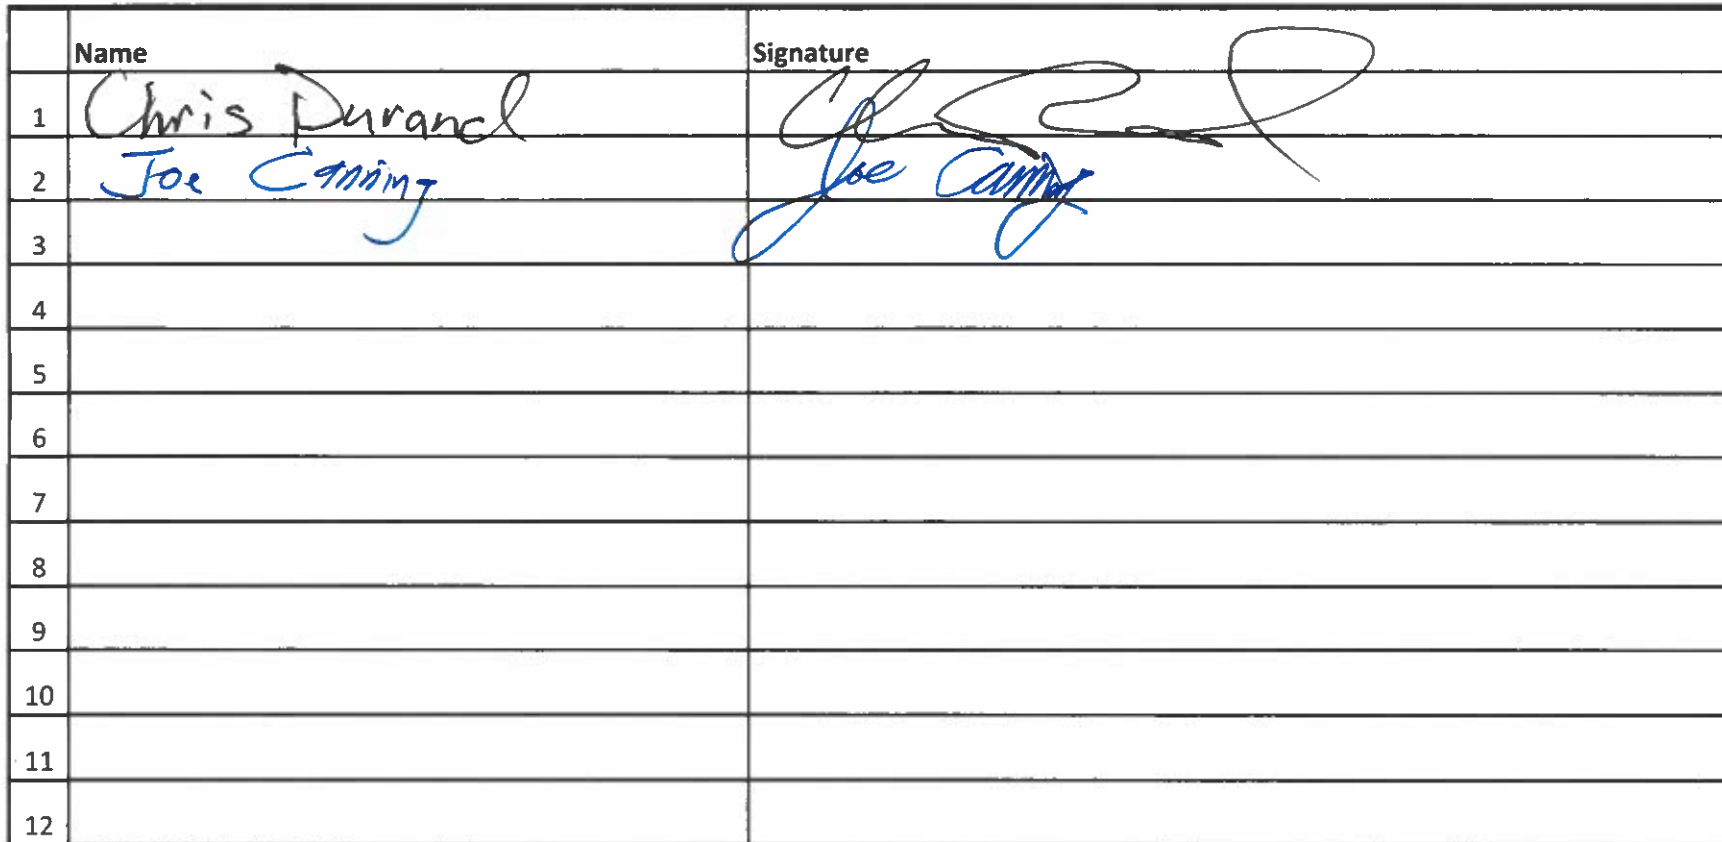 Name Signature
1 Chris Durand
2 Joe Canning Joe Canning
3
4
5
6
7
8
9
10
11
12